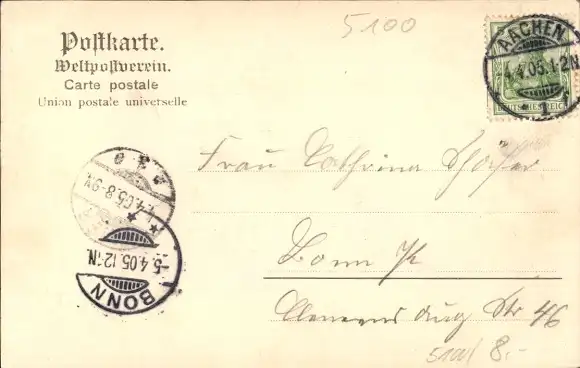 5100
Postkarte.
Weltpostverein.
Carte postale
Union postale universelle
AACHEN
4.4.05.1-2N
1
DEUTSCHES REICH
Frau Cathrina Schäfer
4.4.05.8-9N
Bonn
5.4.05.12-1N.
BONN
Clemens Aug Str 46
5100/ 8.-